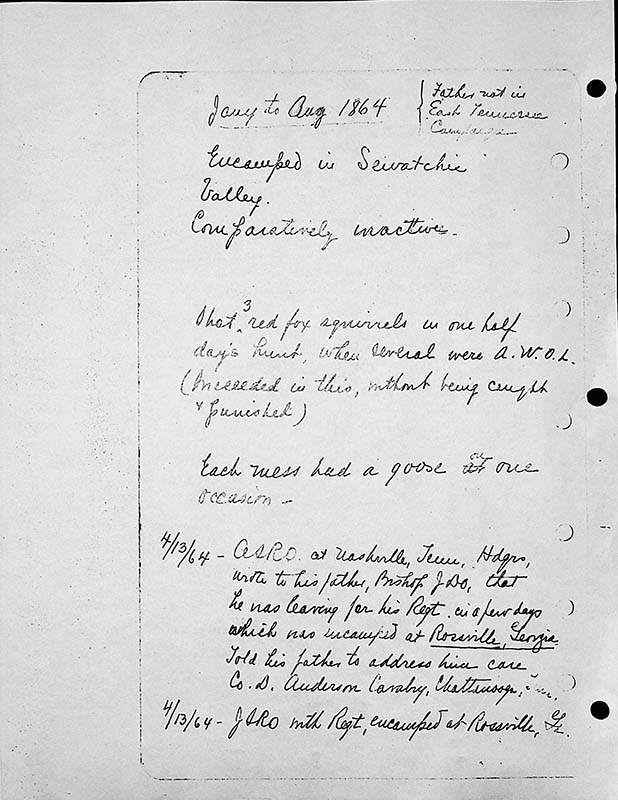 Jany to Aug 1864
{ Father not in
East Tennessee
Campaign
Encamped in Sewatchie
Valley.
Comparatively inactive.
Shot 3 red fox squirrels in one half
day's hunt, when several were A.W.O.L.
(Succeeded in this, without being caught
& punished)
Each mess had a goose on one
occasion -
4/13/64 - at Nashville, Tenn, Hdqrs,
wrote to his father, Bishop that
he was leaving for his Regt. in a few days
which was encamped at Rossville, Georgia.
Told his father to address him care
Co. D. Anderson Cavalry, Chattanooga,
4/13/64 - JSRO with Regt, encamped at Rossville, Ga.